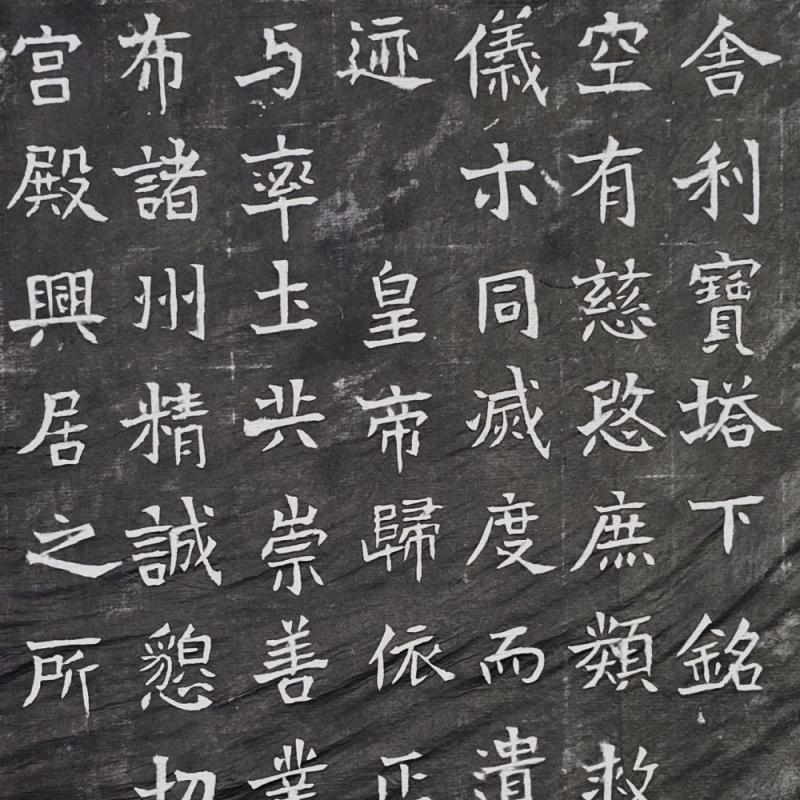 舍利寶塔下銘
空有慈愍庶類救
儀示同滅度而遺
迹 皇帝歸依正
与率土共崇善業
布諸州精誠懇切
宮殿興居之所